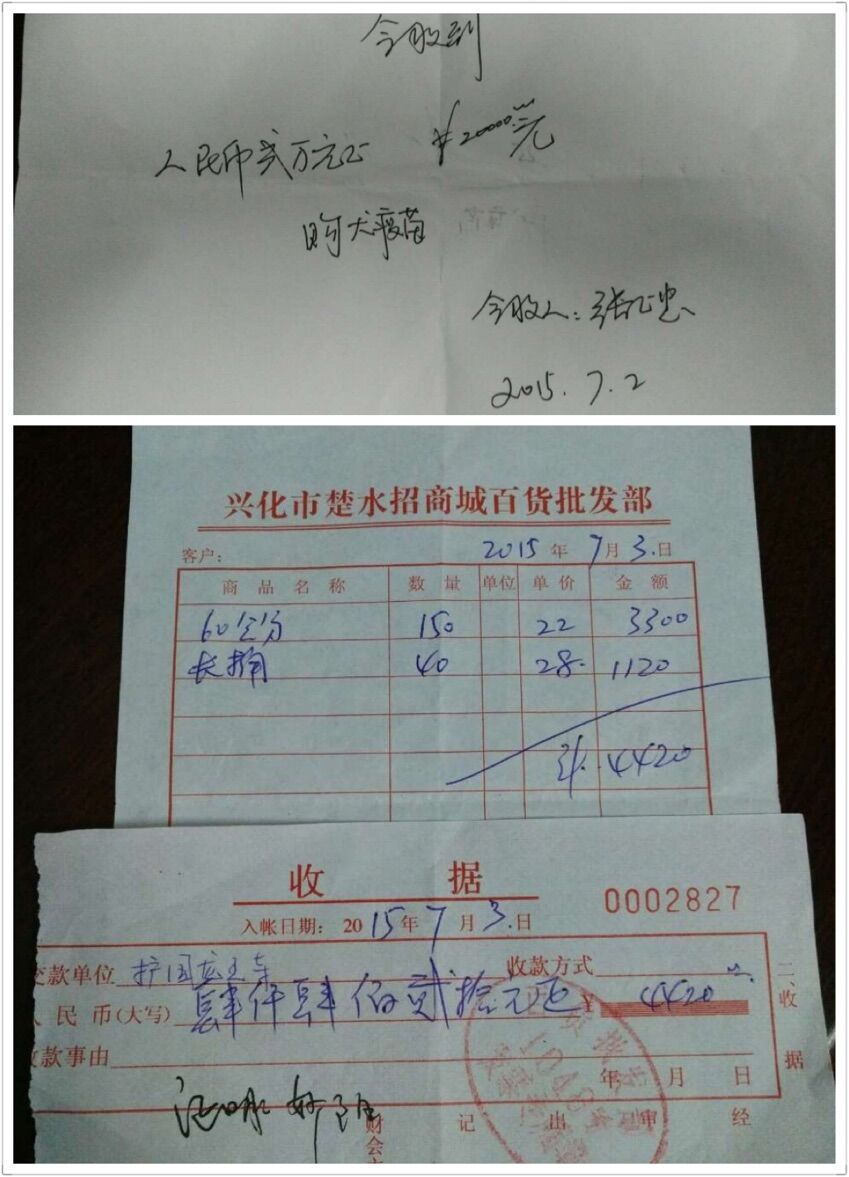 今收到
人民币贰万元正 ¥20000.00元
购犬疫苗
今收人：张正忠
2015.7.2
兴化市楚水招商城百货批发部
客户： 2015年7月3.日
商品名称 数量 单位 单价 金额
60 150 22 3300
长 40 28. 1120
计. 4420
收 据
0002827
入帐日期：2015年7月3.日
交款单位 护国龙王寺 收款方式
人民币(大写) 肆仟肆佰贰拾元正 ¥ 4420
收款事由
年 月 日
二、收据
财会 记 出 审 经